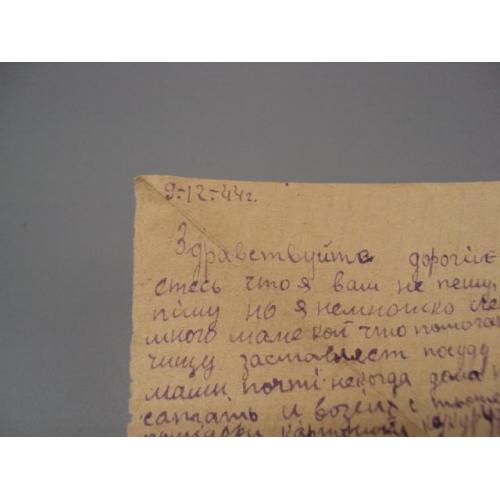 9-12-44г.
Здравствуйте дорогіє
єтесь что я вам не пешу,
пішу но я немношко
много маме кой что помога
чищу заставляєт посуду
маши почті некогда дома
сапать и возєіх с
картошку